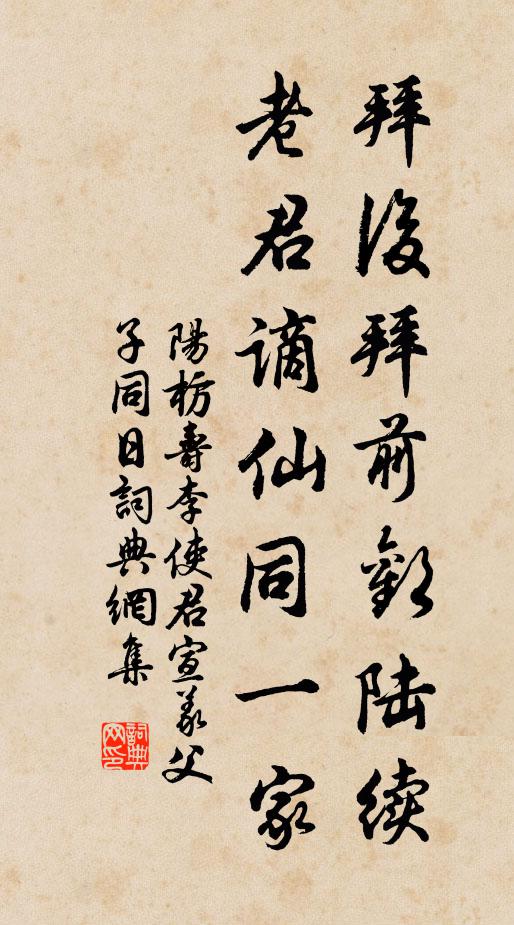 拜後拜前歡陸續
老君謫仙同一家
陽枋壽李使君宣義父
子同日詞典網集
詞典
网印